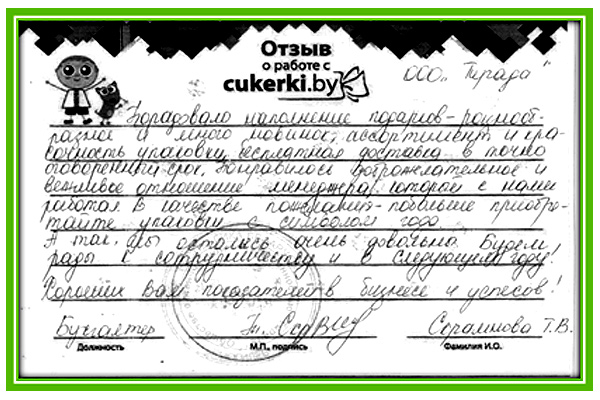 Отзыв
о работе с
cukerki.by
ООО „Тирада"
Порадовало наполнение подарков - разнооб-
разное и много новинок, ассортимент и кра-
сочность упаковки, бесплатная доставка в точно
оговоренный срок. Понравилось доброжелательное и
вежливое отношение менеджера, которой с нами
работал. В качестве пожелания - побольше приобре-
тайте упаковки с символом года.
А так, мы остались очень довольны. Будем
рады к сотрудничеству и в следующем году!
Хороших Вам показателей в бизнесе и успехов!
Бухгалтер Т.В.
Должность М.П., подпись Фамилия И.О.